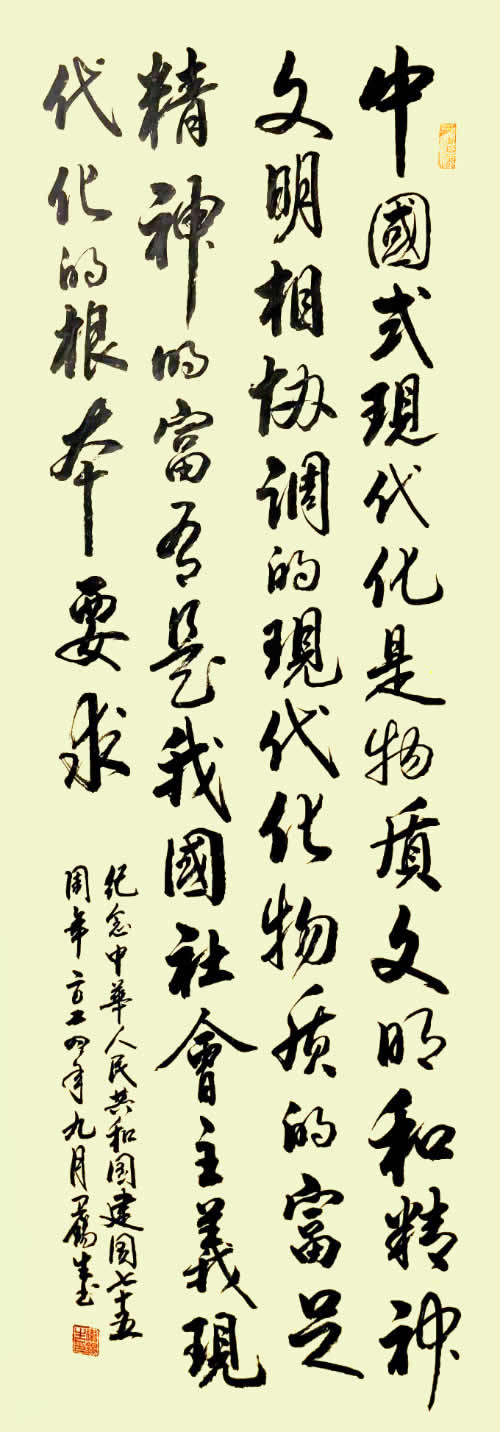 中國式現代化是物质文明和精神
文明相协调的現代化物质的富足
精神的富有是我國社會主義現
代化的根本要求
纪念中華人民共和国建国七十五
周年二〇二四年九月